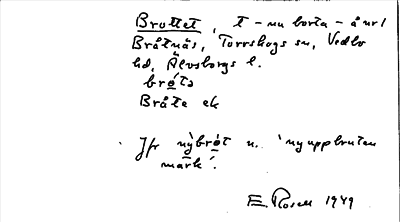 Brottet, t - nu borta - å nr 1
Bråtnäs, Torrskogs sn, Vedbo
hd, Älvsborgs l.
bro̱tɔ
Bråte ek
Jfr nỳbro̱t n. 'nyuppbruten
mark'.
E. Rosell 1949